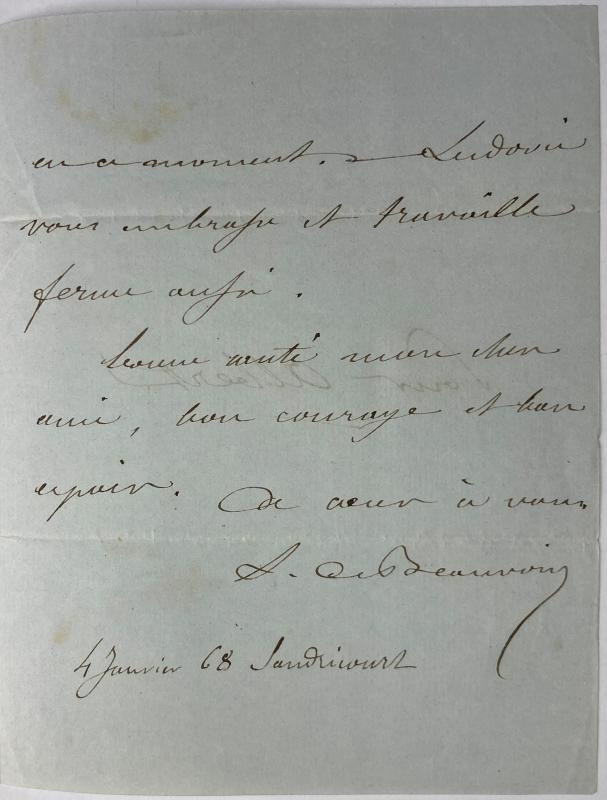 en ce moment. – Ludovic
vous embrasse et travaille
ferme aussi.
bonne santé mon cher
ami, bon courage et bon
espoir.
De cœur à vous
L. de Beauvoir
4 Janvier 68 Sandricourt